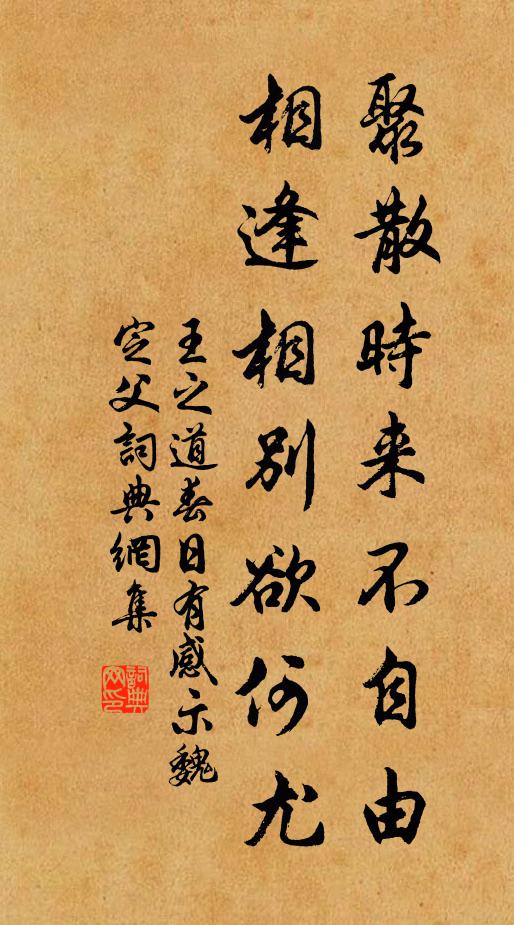 聚散時来不自由
相逢相別欲何尤
王之道春日有感示魏
定父詞典網集
詞典网印